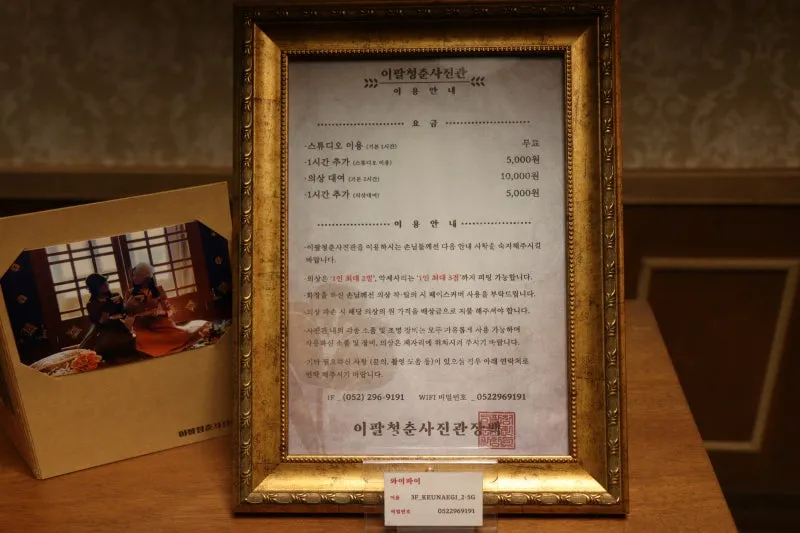 이팔청춘사진관
이 용 안 내
요 금
·스튜디오 이용 (기본 1시간) 무료
·1시간 추가 (스튜디오 이용) 5,000원
·의상 대여 (기본 2시간) 10,000원
·1시간 추가 (의상대여) 5,000원
이 용 안 내
·이팔청춘사진관을 이용하시는 손님들께선 다음 안내 사항을 숙지해주시길
바랍니다.
·의상은 '1인 최대 2벌', 악세사리는 '1인 최대 3점'하지 피팅 가능합니다.
·화장을 하신 손님께선 의상 착·탈의 시 페이스커버 사용을 부탁드립니다.
·의상 파손 시 해당 의상의 원 가격을 배상금으로 지불 해주셔야 합니다.
·사진관 내의 각종 소품 및 조명 장비는 모두 자유롭게 사용 가능하며
사용하신 소품 및 장비, 의상은 제자리에 위치시켜 주시기 바랍니다.
·기타 필요하신 사항 (문의, 촬영 도움 등)이 있으실 경우 아래 연락처로
연락 해주시기 바랍니다.
1F _ (052) 296-9191 WIFI 비밀번호 _ 0522969191
이팔청춘사진관장백
와이파이
이름 3F_KEUNAEGI_2-5G
비밀번호 0522969191
이팔청춘사진관